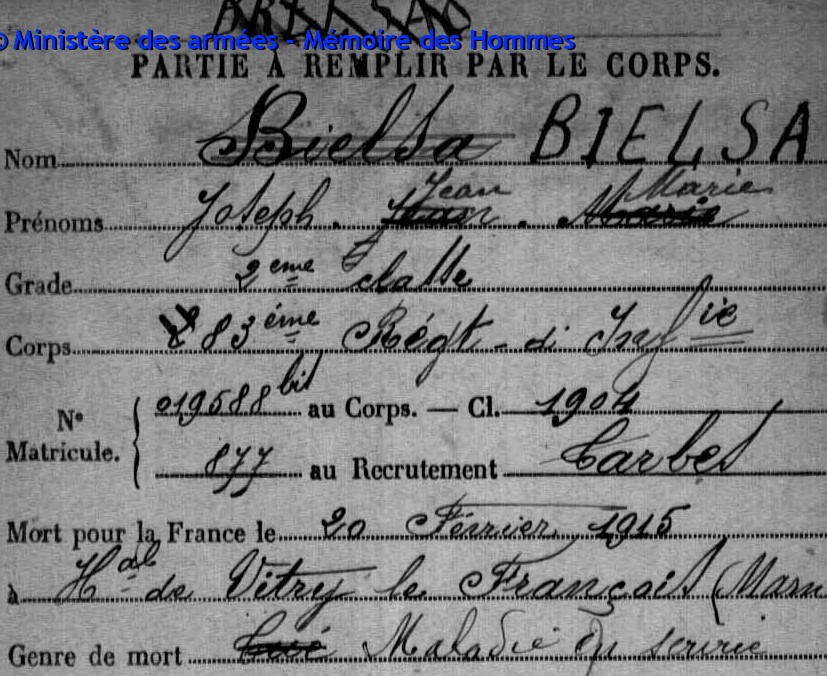 © Ministère des armées - Mémoire des Hommes
PARTIE À REMPLIR PAR LE CORPS.
Nom Bielsa BIELSA
Prénoms Joseph. Jean Jean. Marie Marie
Grade 2 eme classe
Corps 83 ème Régt. di Inf ie
N° Matricule. 019588 bis au Corps. — Cl. 1904
877 au Recrutement Tarbes
Mort pour la France le 20 Février 1915
à H al de Vitry le François (Marn
Genre de mort Tué Maladie en service